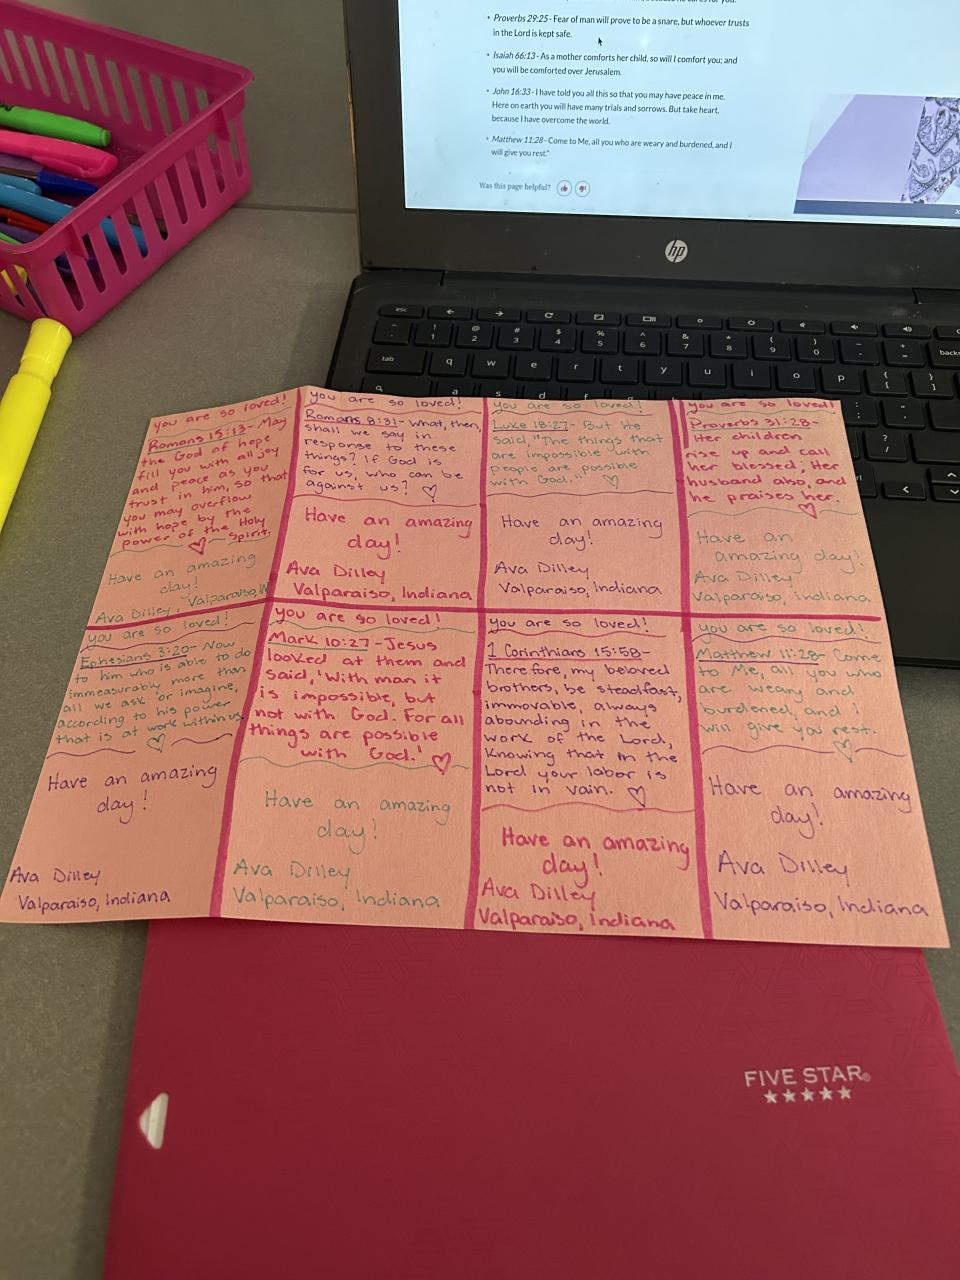 • Proverbs 29:25 - Fear of man will prove to be a snare, but whoever trusts
in the Lord is kept safe.
• Isaiah 66:13 - As a mother comforts her child, so will I comfort you; and
you will be comforted over Jerusalem.
• John 16:33 - I have told you all this so that you may have peace in me.
Here on earth you will have many trials and sorrows. But take heart,
because I have overcome the world.
• Matthew 11:28 - Come to Me, all you who are weary and burdened, and I
will give you rest."
Was this page helpful?
hp
esc
! 1
@ 2
# 3
$ 4
% 5
^ 6
& 7
* 8
( 9
) 0
- -
+ =
back
tab
q w e r t y u i o p { [ } ]
you are so loved!
Romans 15:13- May
the God of hope
fill you with all joy
and peace as you
trust in him, so that
you may overflow
with hope by the
power of the Holy
Spirit.
Have an amazing
day!
Ava Dilley, Valparaiso, IN
you are so loved!
Romans 8:31- What, then,
shall we say in
response to these
things? If God is
for us, who can be
against us? ♡
Have an amazing
day!
Ava Dilley
Valparaiso, Indiana
you are so loved!
Luke 18:27- But He
said, "The things that
are impossible with
people are possible
with God." ♡
Have an amazing
day!
Ava Dilley
Valparaiso, Indiana
you are so loved!
Proverbs 31:28-
Her children
rise up and call
her blessed; Her
husband also, and
he praises her.
Have an
amazing day!
Ava Dilley
Valparaiso, Indiana
you are so loved!
Ephesians 3:20- Now
to him who is able to do
immeasurably more than
all we ask or imagine,
according to his power
that is at work within us
Have an amazing
day!
Ava Dilley
Valparaiso, Indiana
you are so loved!
Mark 10:27- Jesus
looked at them and
said, 'With man it
is impossible, but
not with God. For all
things are possible
with God.' ♡
Have an amazing
day!
Ava Dilley
Valparaiso, Indiana
you are so loved!
1 Corinthians 15:58-
Therefore, my beloved
brothers, be steadfast,
immovable, always
abounding in the
work of the Lord,
Knowing that in the
Lord your labor is
not in vain. ♡
Have an amazing
day!
Ava Dilley
Valparaiso, Indiana
you are so loved!
Matthew 11:28- Come
to Me, all you who
are weary and
burdened, and I
will give you rest.
Have an amazing
day!
Ava Dilley
Valparaiso, Indiana
FIVE STAR®
★★★★★